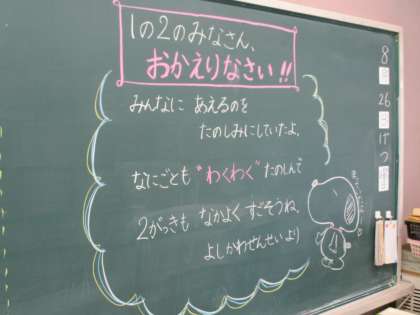 1の2のみなさん、
おかえりなさい!!
みんなに あえるのを
たのしみにしていたよ。
なにごとも "わくわく" たのしんで
2がっきも なかよく すごそうね。
よしかわせんせいより
8
26
げつ